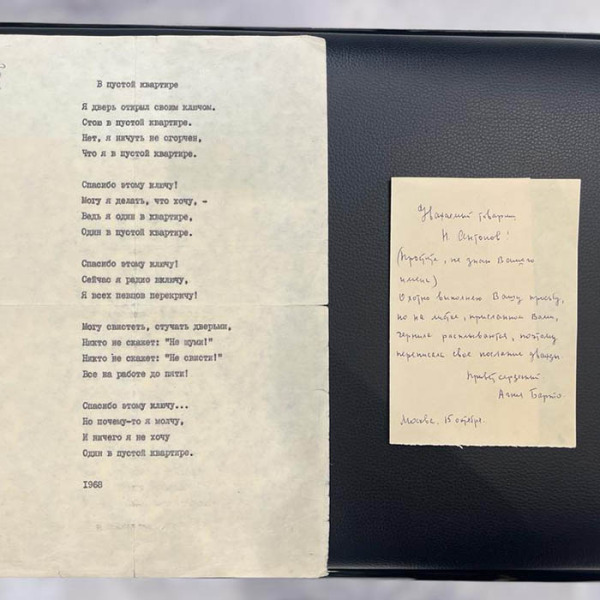 В пустой квартире
Я дверь открыл своим ключом.
Стою в пустой квартире.
Нет, я ничуть не огорчен,
Что я в пустой квартире.
Спасибо этому ключу!
Могу я делать, что хочу, -
Ведь я один в квартире,
Один в пустой квартире.
Спасибо этому ключу!
Сейчас я радио включу,
Я всех певцов перекричу!
Могу свистеть, стучать дверьми,
Никто не скажет: "Не шуми!"
Никто не скажет: "Не свисти!"
Все на работе до пяти!
Спасибо этому ключу...
Но почему-то я молчу,
И ничего я не хочу
Один в пустой квартире.
1968
Уважаемый товарищ
Н. Антонов!
(Простите, не знаю Вашего
имени)
Охотно выполняю Вашу просьбу,
но на листке, присланном Вами,
чернила расплываются, поэтому
переписала свое послание дважды
Привет сердечный
Агния Барто.
Москва, 15 октября.